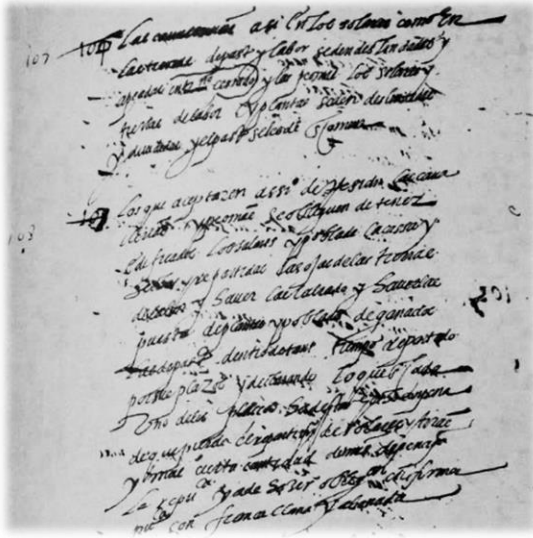 107 104 Las cavallerias asi en los solares como en
las tierras de pasto y labor se den deslindadas y
apeadas en termino cerrado y las peonias los solares y
tierras de labor y plantas se den deslindadas
y divididas y el pasto se le de en comun
108 105 Los que aceptaren assiento de Residir las cava
llerias y peonias se obliguen de tener
edificados los solares y poblada la casa y
hechas y repartidas las ojas de las tierras
de labor y haver las labrado y haver las
puesto de plantas y poblado de ganados
las de pasto dentro de tanto tiempo repartido
por sus plazos y declarando lo que en cada
uno de los plazos ha de estar hecho so pena
de que pierda el repartimiento de solares y tierras
y mas cierta cantidad de mrs de pena pa
la repuca y a de hacer obligon en forma
puca con fiança llana y abonada